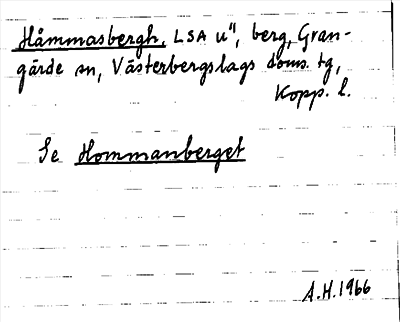 Håmmasbergh, LSA u", berg, Gran-
gärde sn, Västerbergslags doms. tg,
Kopp. l.
Se Hommanberget
A.H. 1966